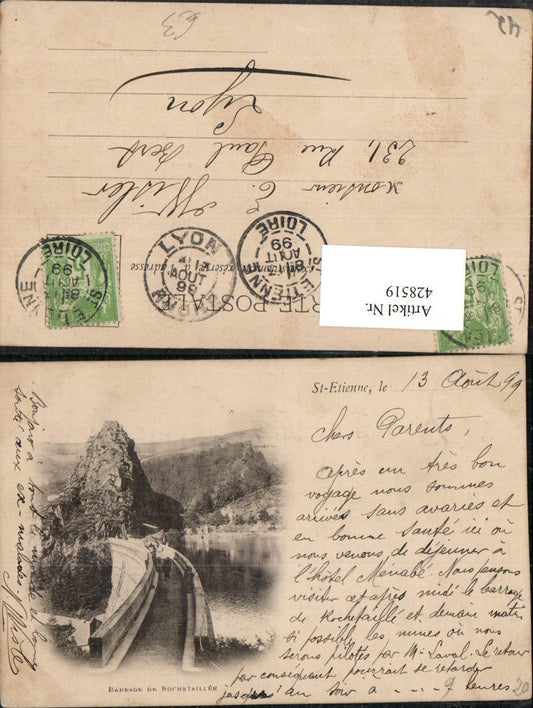 63
CARTE POSTALE
Monsieur E. Wisler
231, Rue Paul Bert
Lyon
ST ETIENNE
AOUT
99
LOIRE
LYON
AOUT
99
ST ETIENNE
AOUT
99
LOIRE
Artikel Nr.
428519
St-Etienne, le 13 Août 99
Chers Parents,
après un très bon
voyage nous sommes
arrivés sans avaries et
en bonne santé ici où
nous venons de déjeuner à
l'hôtel Ménabé. Nous pensons
visiter cet après midi le barrage
de Rochetaillé et demain matin
si possible les mines où nous
serons pilotés par Mr Laval. Le retour
par conséquent pourrait se retarder
jusqu'au soir à - . . - 9 heures 20
Bonjour à tout le monde et bonne
santé aux ex-malades.
Wisler
BARRAGE DE ROCHETAILLÉE